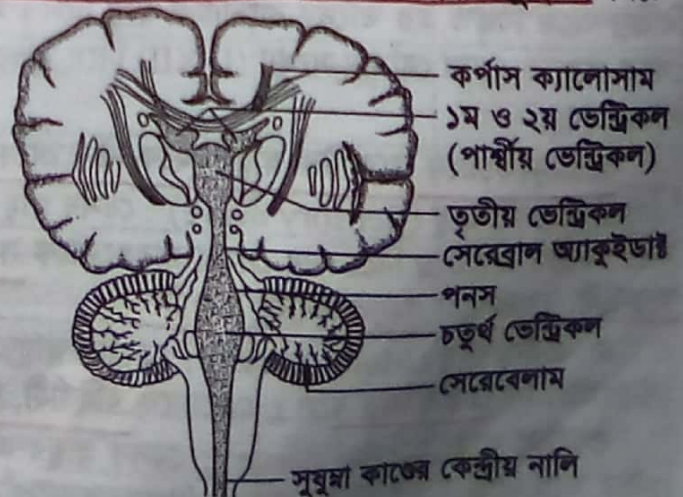 কর্পাস ক্যালোসাম
১ম ও ২য় ভেন্ট্রিকল
(পার্শ্বীয় ভেন্ট্রিকল)
তৃতীয় ভেন্ট্রিকল
সেরেব্রাল অ্যাকুইডাক্ট
পনস
চতুর্থ ভেন্ট্রিকল
সেরেবেলাম
সুষুম্না কাণ্ডের কেন্দ্রীয় নালি